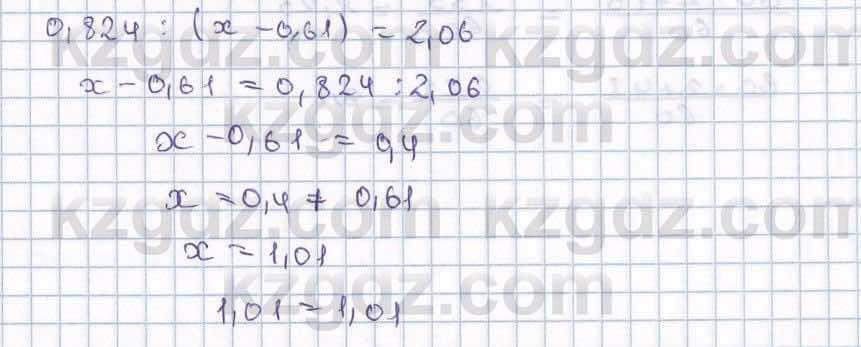 0,824 : (x - 0,61) = 2,06
x - 0,61 = 0,824 : 2,06
x - 0,61 = 0,4
x = 0,4 + 0,61
x = 1,01
1,01 = 1,01
kzgdz.com kzgdz.com
kzgdz.com
kzgdz.com kzgdz.com
kzgdz.com